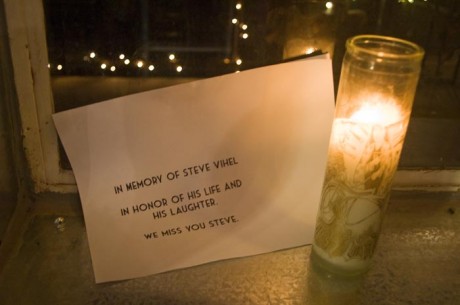 IN MEMORY OF STEVE VIHEL
IN HONOR OF HIS LIFE AND
HIS LAUGHTER.
WE MISS YOU STEVE.